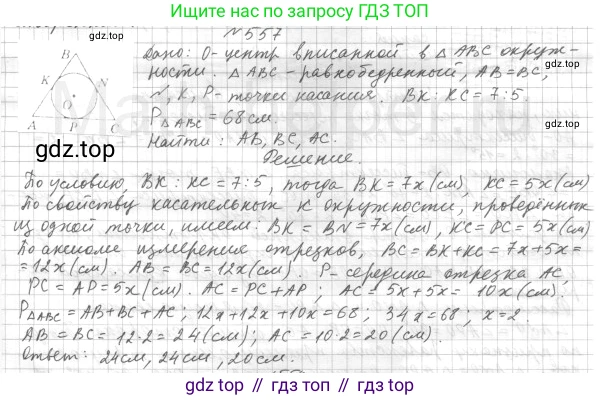 Ищите нас по запросу ГДЗ ТОП
№557
Дано: О-центр вписанной в △ABC окруж-
ности. △ABC-равнобедренный, AB=BC,
N, K, P- точки касания. BK:KC=7:5.
P△ABC=68см.
Найти: AB, BC, AC.
B
K
N
O
A
P
C
gdz.top
Решение.
По условию, BK:KC=7:5, тогда BK=7x(см), KC=5x(см)
По свойству касательных к окружности, проведённых
из одной точки, имеем: BK=BN=7x(см), KC=PC=5x(см)
По аксиоме измерения отрезков, BC=BK+KC=7x+5x=
=12x(см). AB=BC=12x(см). P-середина отрезка AC,
PC=AP=5x(см). AC=PC+AP; AC=5x+5x=10x(см).
P△ABC=AB+BC+AC; 12x+12x+10x=68; 34x=68; x=2
AB=BC=12·2=24(см); AC=10·2=20(см).
Ответ: 24см, 24см, 20см.
gdz.top // гдз топ // gdz top